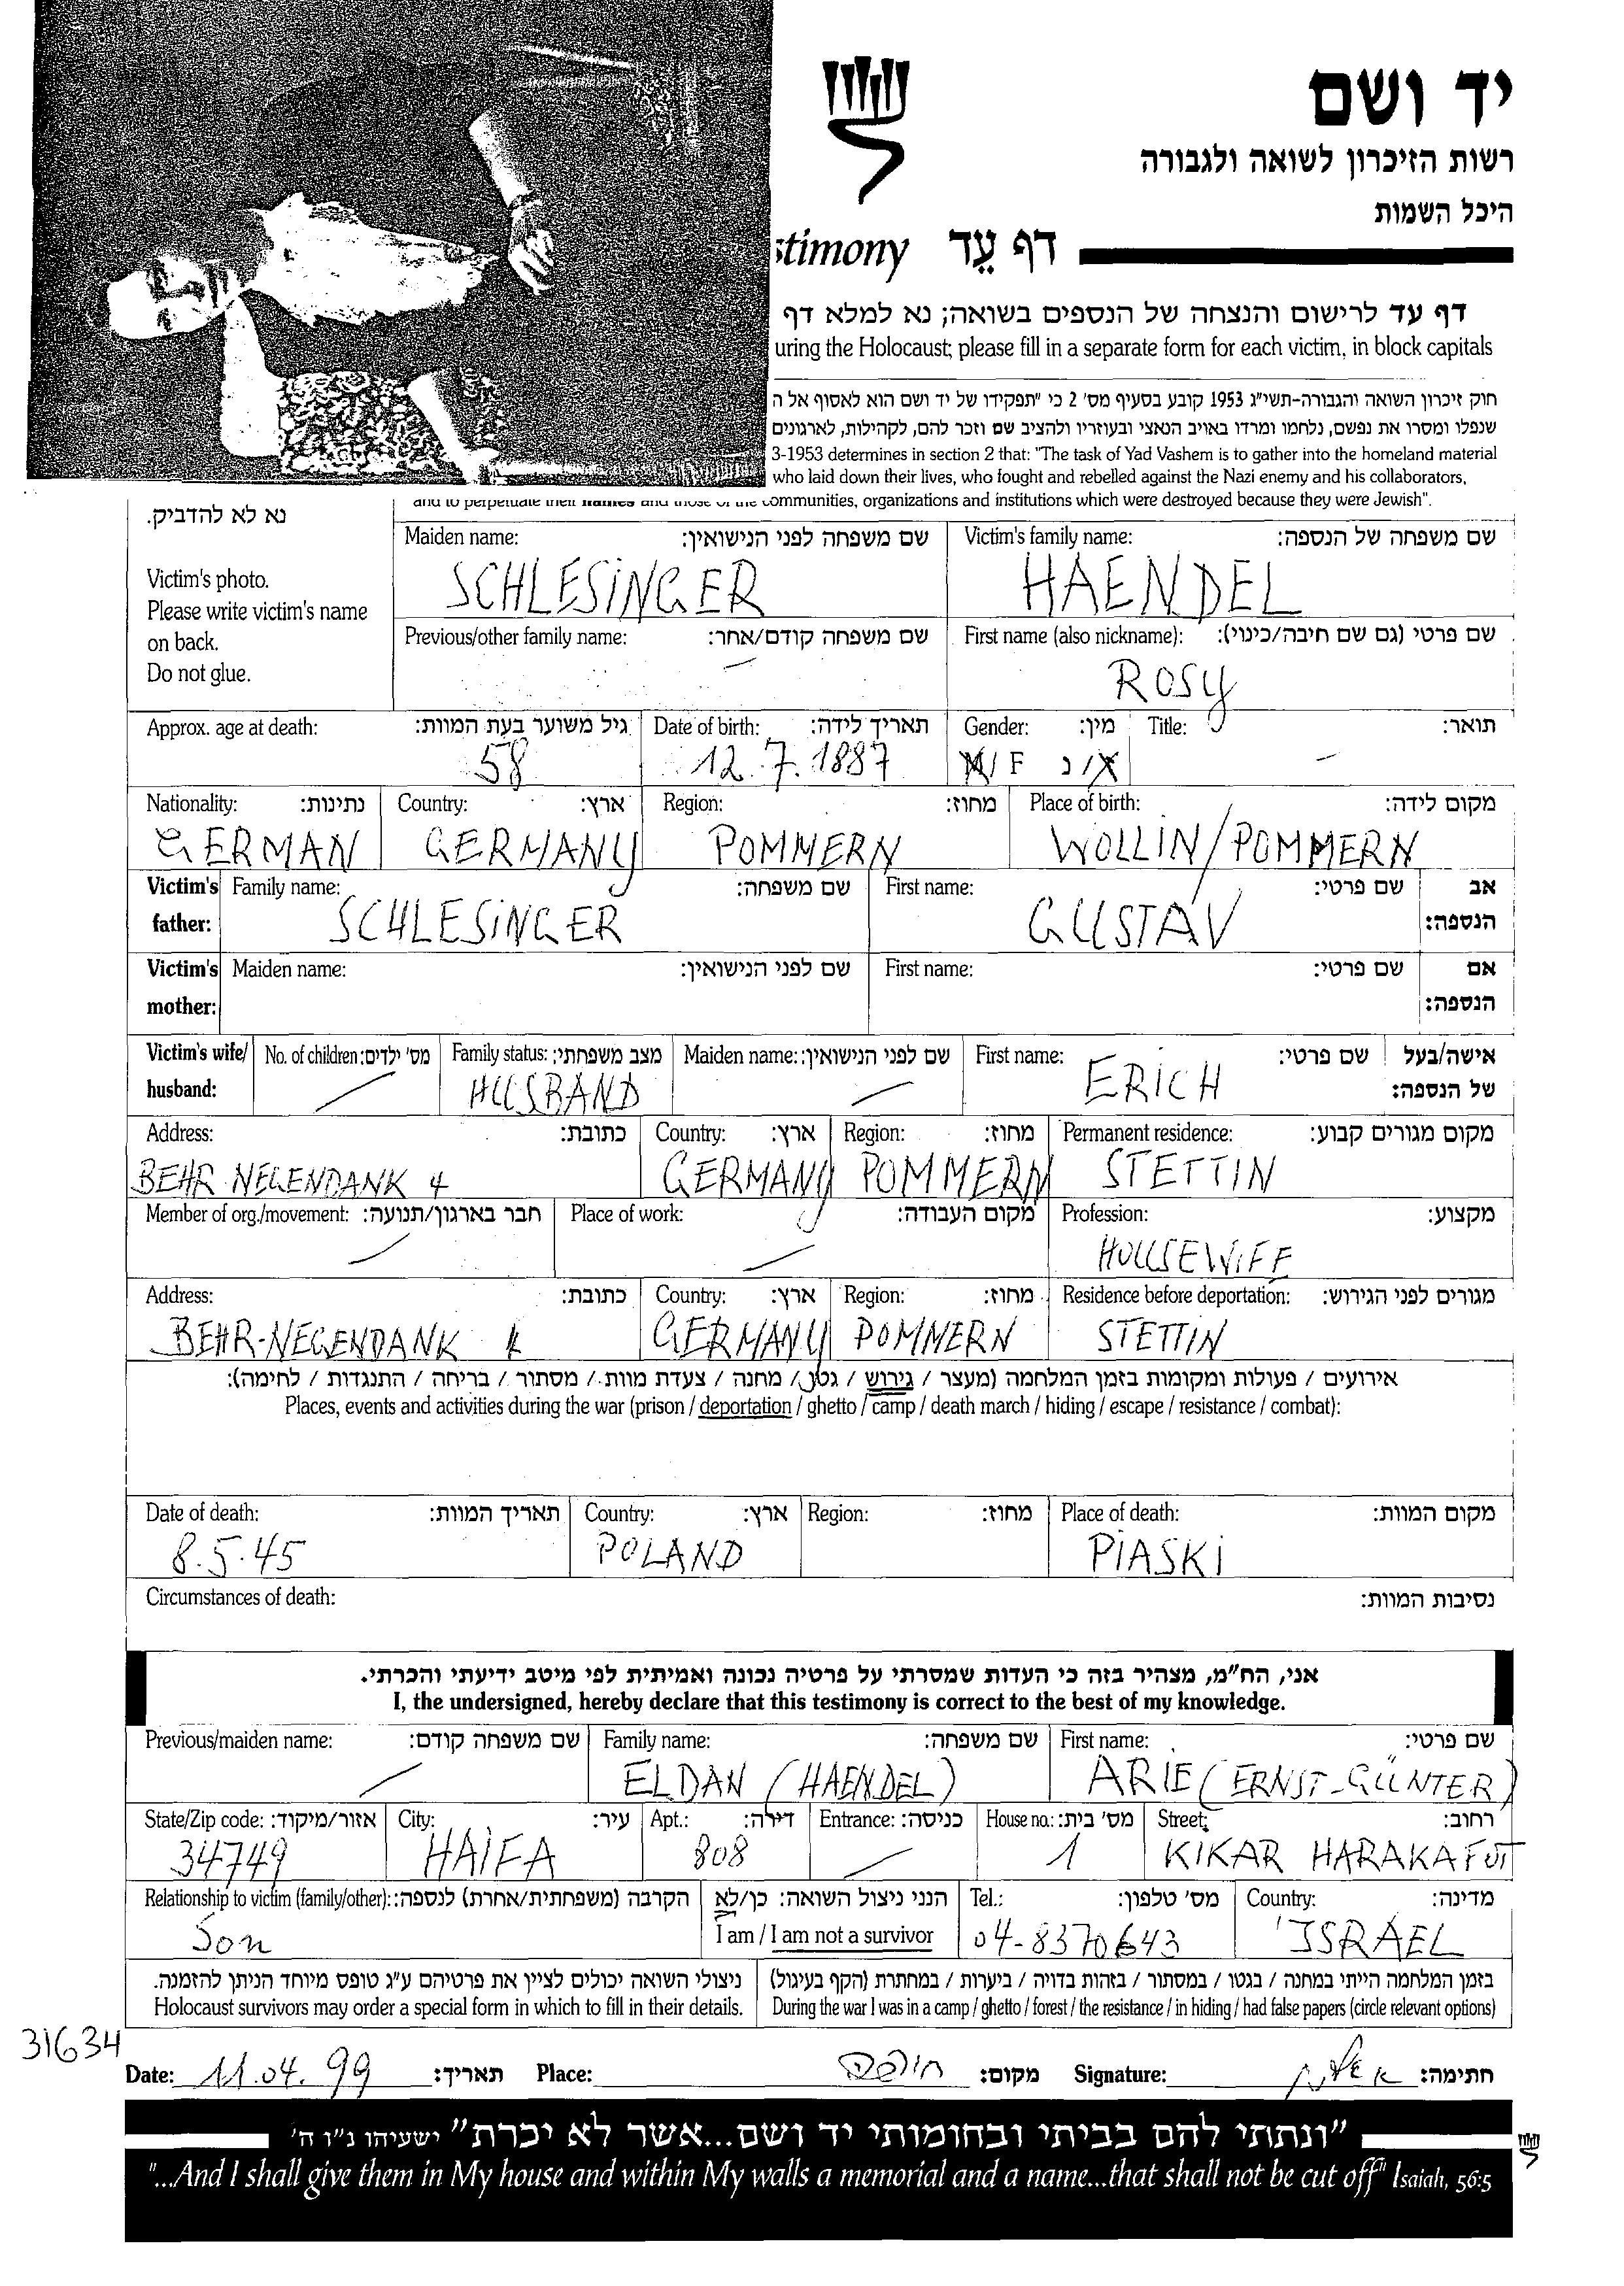 יד ושם
רשות הזיכרון לשואה ולגבורה
היכל השמות
stimony דף עֵד
דף עד לרישום והנצחה של הנספים בשואה; נא למלא דף
uring the Holocaust; please fill in a separate form for each victim, in block capitals
חוק זיכרון השואה והגבורה-תשי״ג 1953 קובע בסעיף מס׳ 2 כי ״תפקידו של יד ושם הוא לאסוף אל ה
שנפלו ומסרו את נפשם, נלחמו ומרדו באויב הנאצי ובעוזריו ולהציב שם וזכר להם, לקהילות, לארגונים
3-1953 determines in section 2 that: "The task of Yad Vashem is to gather into the homeland material
who laid down their lives, who fought and rebelled against the Nazi enemy and his collaborators,
and to perpetuate their names and those of the communities, organizations and institutions which were destroyed because they were Jewish".
נא לא להדביק.
Victim's photo.
Please write victim's name
on back.
Do not glue.
Maiden name: שם משפחה לפני הנישואין: Victim's family name: שם משפחה של הנספה:
SCHLESINGER HAENDEL
Previous/other family name: שם משפחה קודם/אחר: First name (also nickname): שם פרטי (גם שם חיבה/כינוי):
– ROSY
Approx. age at death: גיל משוער בעת המוות: Date of birth: תאריך לידה: Gender: מין: Title: תואר:
58 12.7.1887 M/F ז/נ –
Nationality: נתינות: Country: ארץ: Region: מחוז: Place of birth: מקום לידה:
GERMAN GERMANY POMMERN WOLLIN/POMMERN
Victim's father: Family name: שם משפחה: First name: שם פרטי: אב הנספה:
SCHLESINGER GUSTAV
Victim's mother: Maiden name: שם לפני הנישואין: First name: שם פרטי: אם הנספה:
Victim's wife/ husband: No. of children: מס׳ ילדים: Family status: מצב משפחתי: Maiden name: שם לפני הנישואין: First name: שם פרטי: אישה/בעל של הנספה:
HUSBAND ERICH
Address: כתובת: Country: ארץ: Region: מחוז: Permanent residence: מקום מגורים קבוע:
BEHR-NEGENDANK 4 GERMANY POMMERN STETTIN
Member of org./movement: חבר בארגון/תנועה: Place of work: מקום העבודה: Profession: מקצוע:
HOUSEWIFE
Address: כתובת: Country: ארץ: Region: מחוז: Residence before deportation: מגורים לפני הגירוש:
BEHR-NEGENDANK 4 GERMANY POMMERN STETTIN
אירועים / פעולות ומקומות בזמן המלחמה (מעצר / גירוש / גטו / מחנה / צעדת מוות / מסתור / בריחה / התנגדות / לחימה):
Places, events and activities during the war (prison / deportation / ghetto / camp / death march / hiding / escape / resistance / combat):
Date of death: תאריך המוות: Country: ארץ: Region: מחוז: Place of death: מקום המוות:
8.5.45 POLAND PIASKI
Circumstances of death: נסיבות המוות:
אני, הח״מ, מצהיר בזה כי העדות שמסרתי על פרטיה נכונה ואמיתית לפי מיטב ידיעתי והכרתי.
I, the undersigned, hereby declare that this testimony is correct to the best of my knowledge.
Previous/maiden name: שם משפחה קודם: Family name: שם משפחה: First name: שם פרטי:
ELDAN (HAENDEL) ARIE (ERNST-GÜNTER)
State/Zip code: אזור/מיקוד: City: עיר: Apt.: דירה: Entrance: כניסה: House no.: מס׳ בית: Street: רחוב:
34749 HAIFA 808 1 KIKAR HARAKAFOT
Relationship to victim (family/other): הקרבה (משפחתית/אחרת) לנספה: הנני ניצול השואה: כן/לא Tel.: מס׳ טלפון: Country: מדינה:
Son I am / I am not a survivor 04-8370643 ISRAEL
ניצולי השואה יכולים לציין את פרטיהם ע״ג טופס מיוחד הניתן להזמנה. בזמן המלחמה הייתי במחנה / בגטו / במסתור / בזהות בדויה / ביערות / במחתרת (הקף בעיגול)
Holocaust survivors may order a special form in which to fill in their details. During the war I was in a camp / ghetto / forest / the resistance / in hiding / had false papers (circle relevant options)
31634
Date: 11.04.99 תאריך: Place: מקום: Signature: חתימה:
״ונתתי להם בביתי ובחומותי יד ושם...אשר לא יכרת״ ישעיהו נ״ו ה׳
"...And I shall give them in My house and within My walls a memorial and a name...that shall not be cut off" Isaiah, 56:5